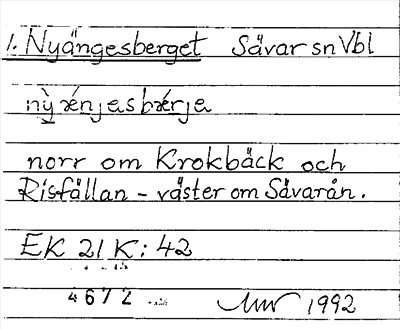 1. Nyängesberget Sävar sn Vbl
nỳǽnjasbǽrje
norr om Krokbäck och
Risfällan - väster om Sävarån.
EK 21 K: 42
4672
1992